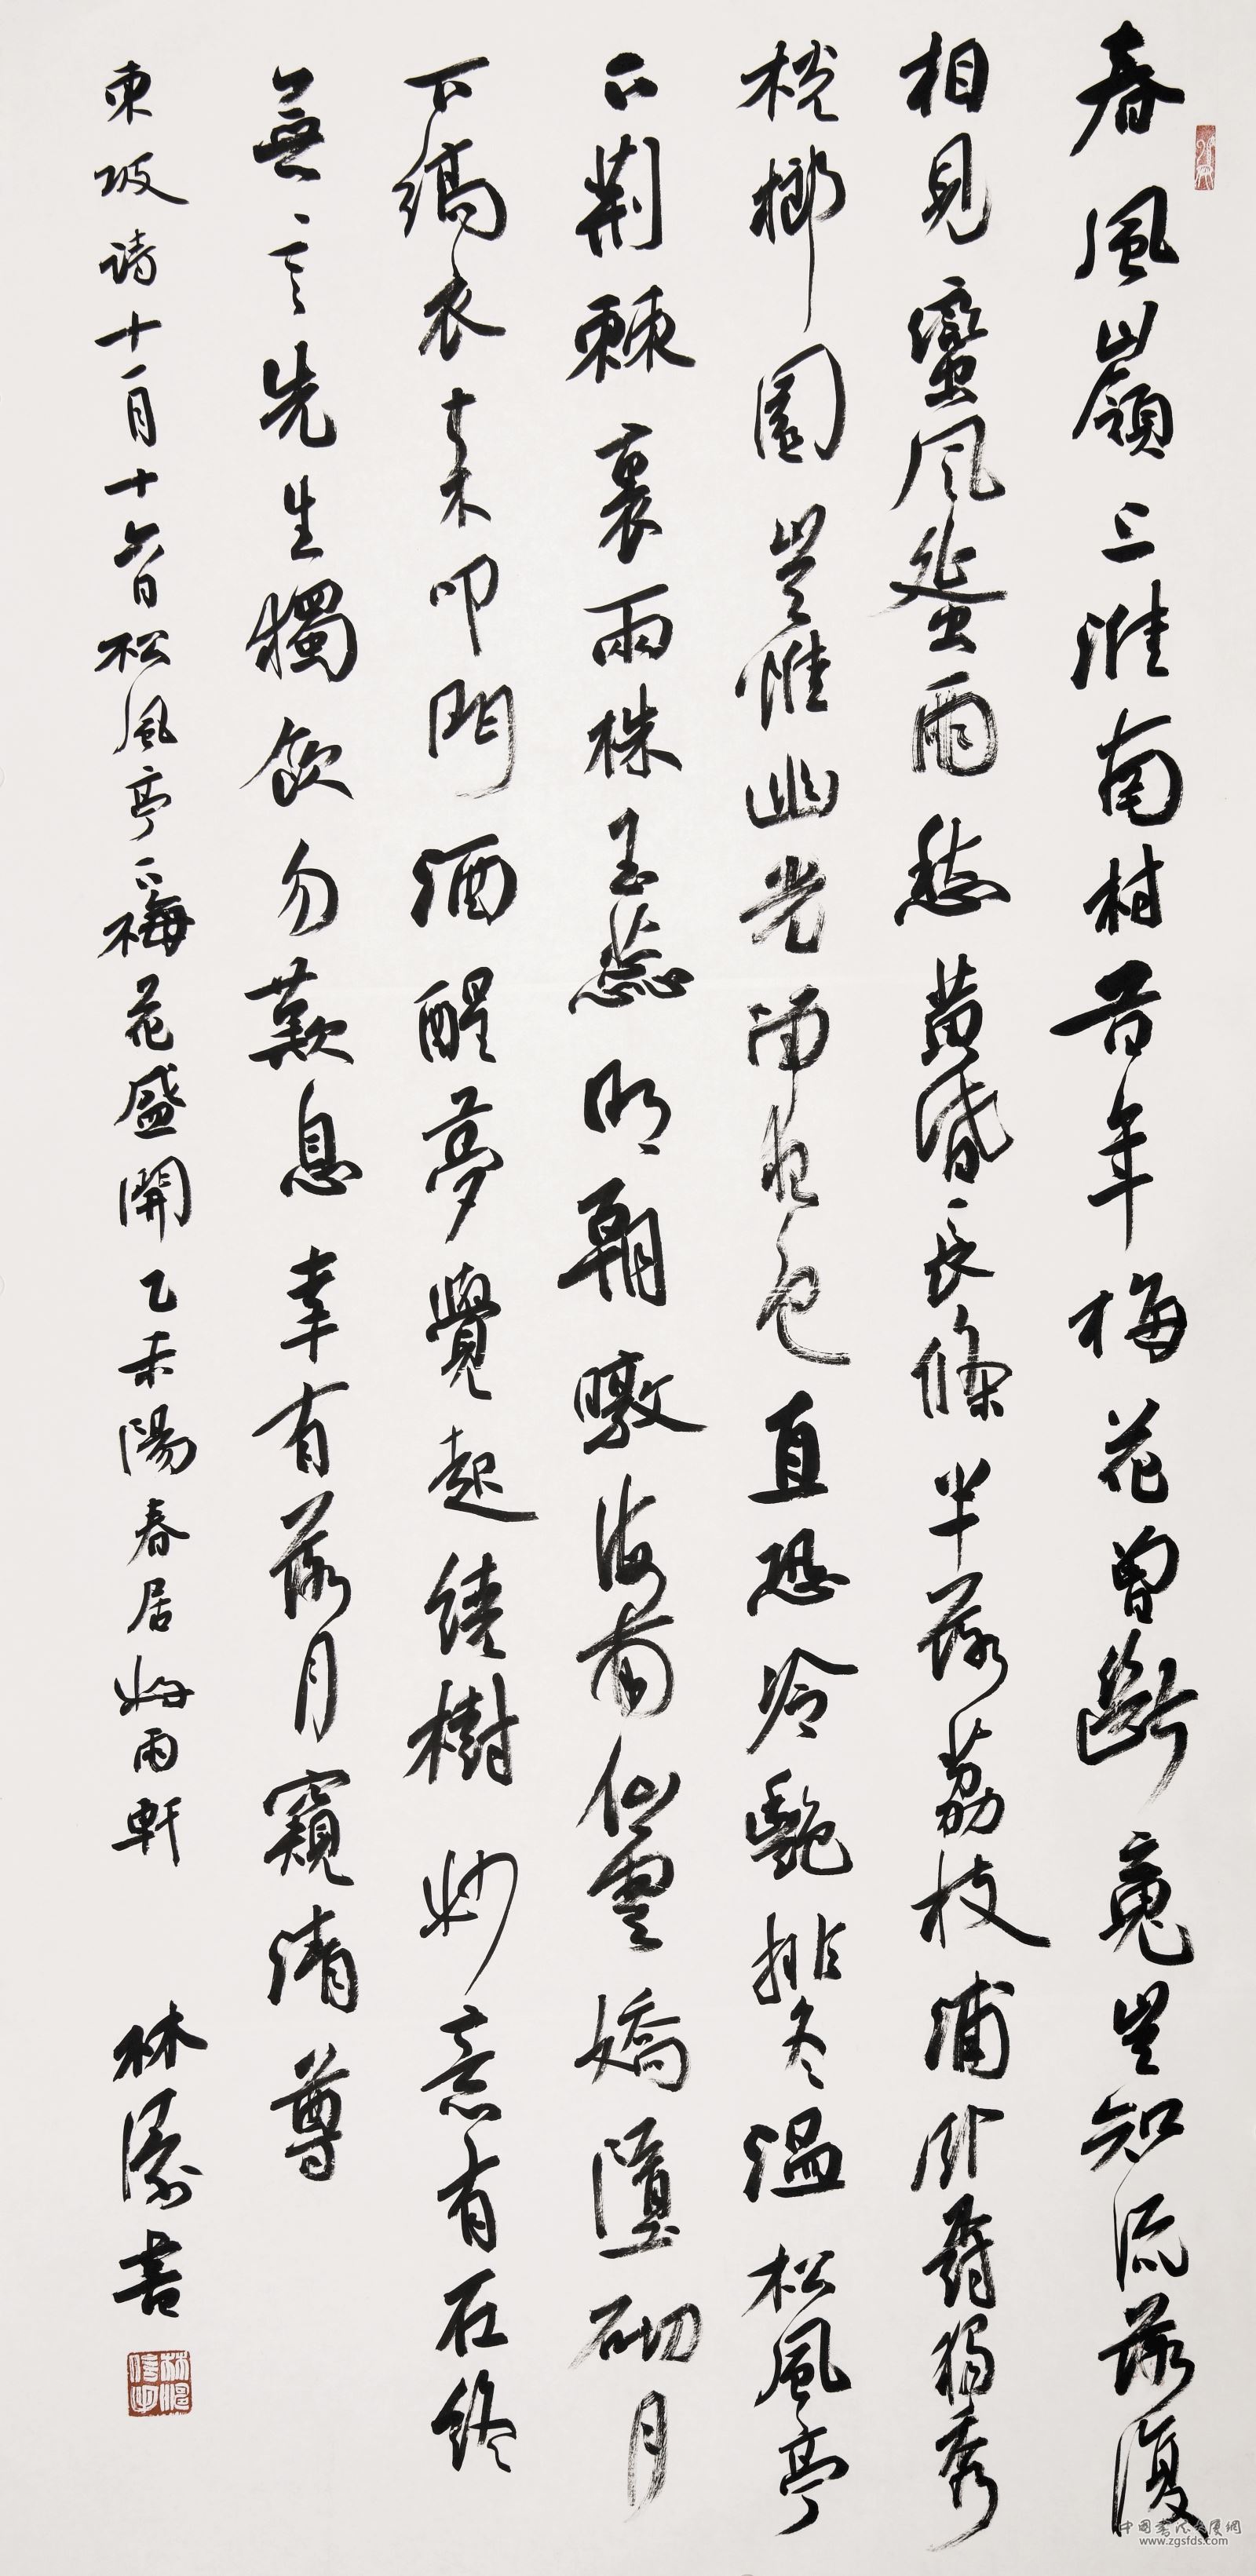 春風嶺上淮南村昔年梅花曾斷魂豈知流落復
相見蠻風蜑雨愁黃昏長條半落荔枝浦臥樹獨秀
桄榔園豈惟幽光留夜色直恐冷艷排冬溫松風亭
下荊棘裏兩株玉蕊明朝暾海南仙雲嬌墮砌月
下縞衣來叩門酒醒夢覺起繞樹妙意有在終
無言先生獨飲勿歎息幸有落月窺清尊
東坡詩十一月十六日松風亭下梅花盛開乙未陽春居好雨軒 林書
www.zgsfds.com